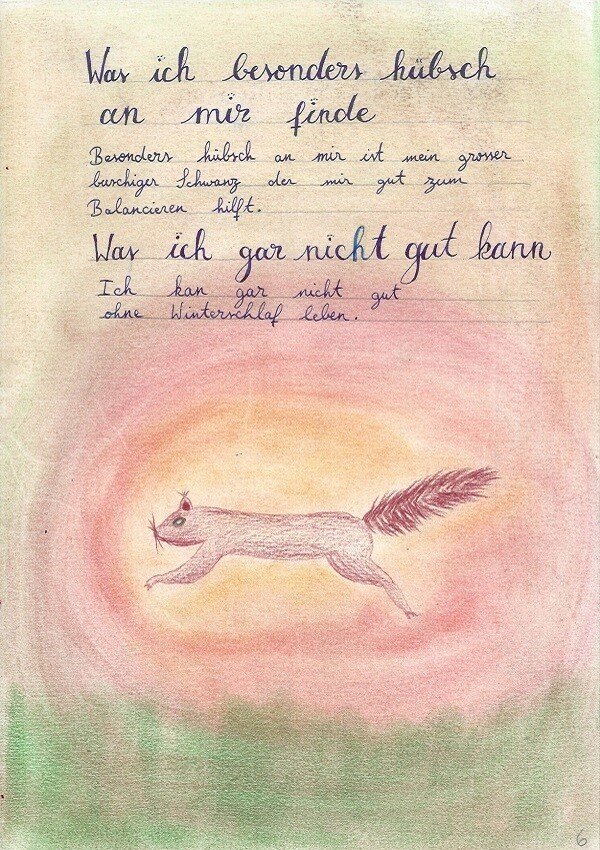 Was ich besonders hübsch
an mir finde
Besonders hübsch an mir ist mein grosser
buschiger Schwanz der mir gut zum
Balancieren hilft.
Was ich gar nicht gut kann
Ich kan gar nicht gut
ohne Winterschlaf leben.
6